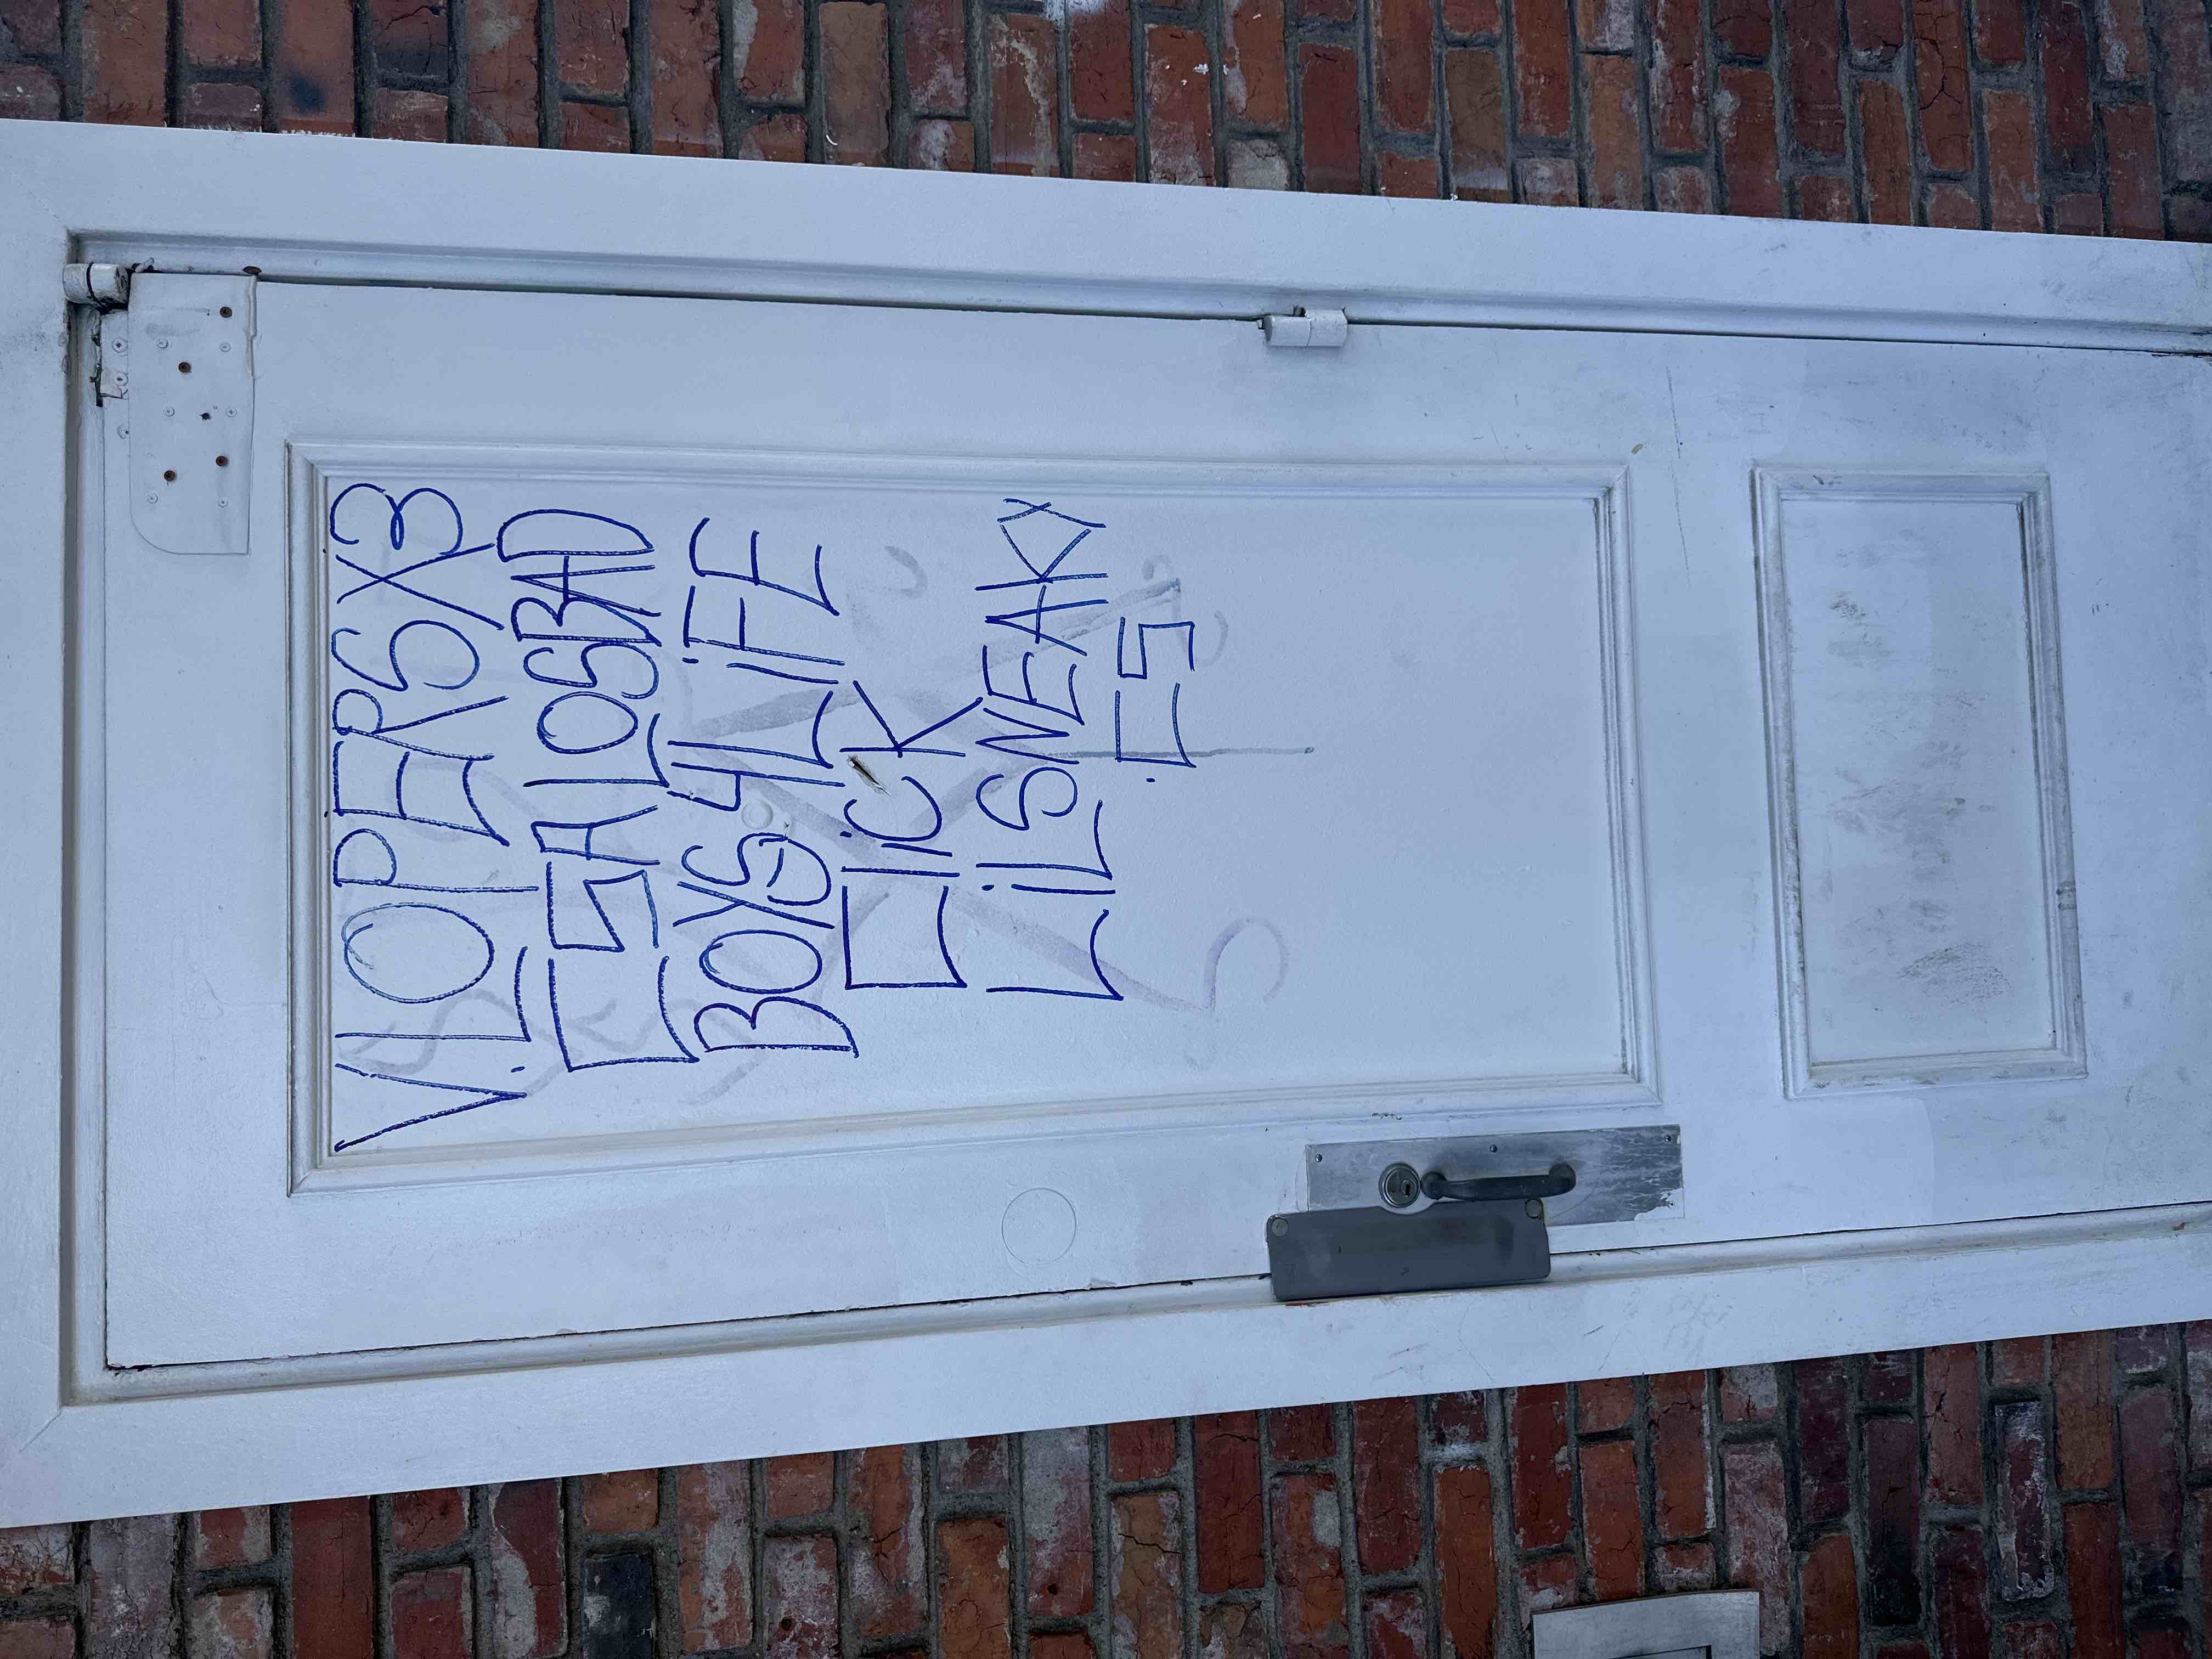 V.LOPERSX3
CSA LOS BAD
BOYS 4 LiFE
CLiCK
LiL SNEAKY
.CS